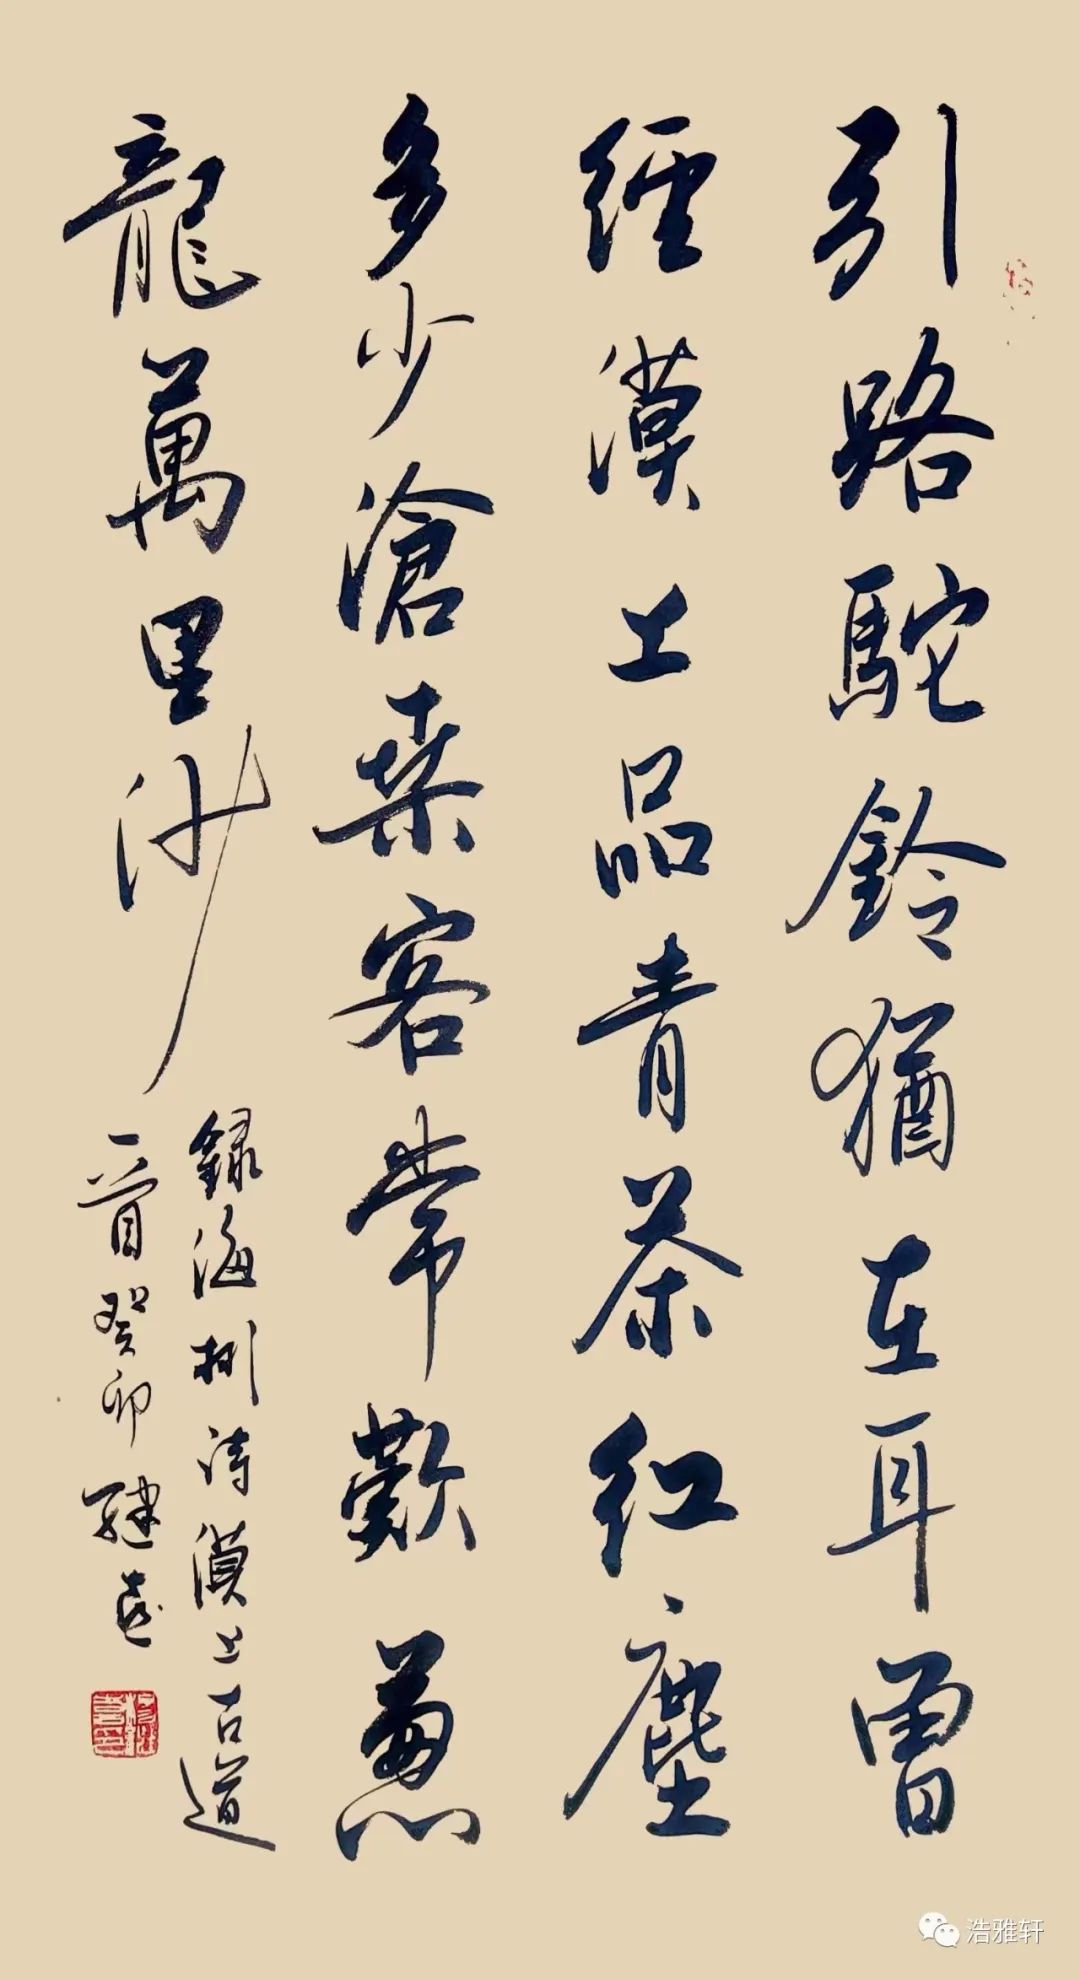 引路駝鈴猶在耳曾
經漠上品青茶紅塵
多少滄桑客常歎蔥
龍萬里沙
錄海詩漠上古道
一首癸卯
浩雅轩